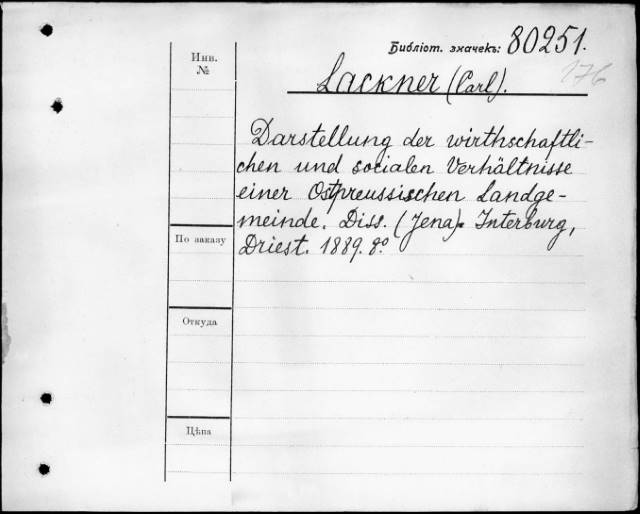 Библіот. значекъ: 80251.
176
Инв.
№
Lackner (Carl).
Darstellung der wirthschaftli-
chen und socialen Verhältnisse
einer Ostpreussischen Landge-
meinde. Diss. (Jena). Interburg,
Driest. 1889. 8º
По заказу
Откуда
Цѣна